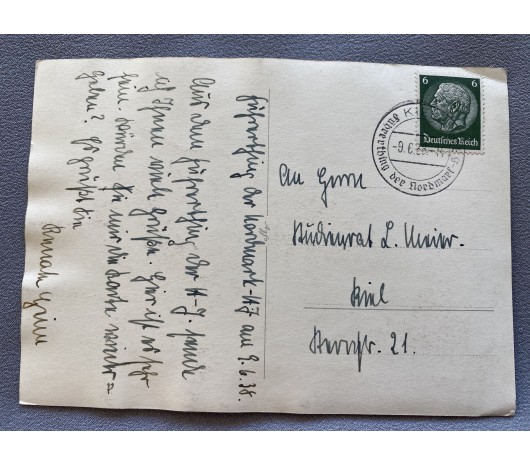 Führerthing der Nordmark-HJ am 9.6.38.
Aus dem Führerthing der H-J. sende
ich Ihnen viele Grüße. Hier ist es sehr
fein. Würden Sie mir die Karte wieder-
geben? Es grüßt Sie
6 6
Deutsches Reich
Führerthing der Nordmark-HJ
-9.6.38
An Herrn
Studienrat L. Meier.
Kiel
str. 21.